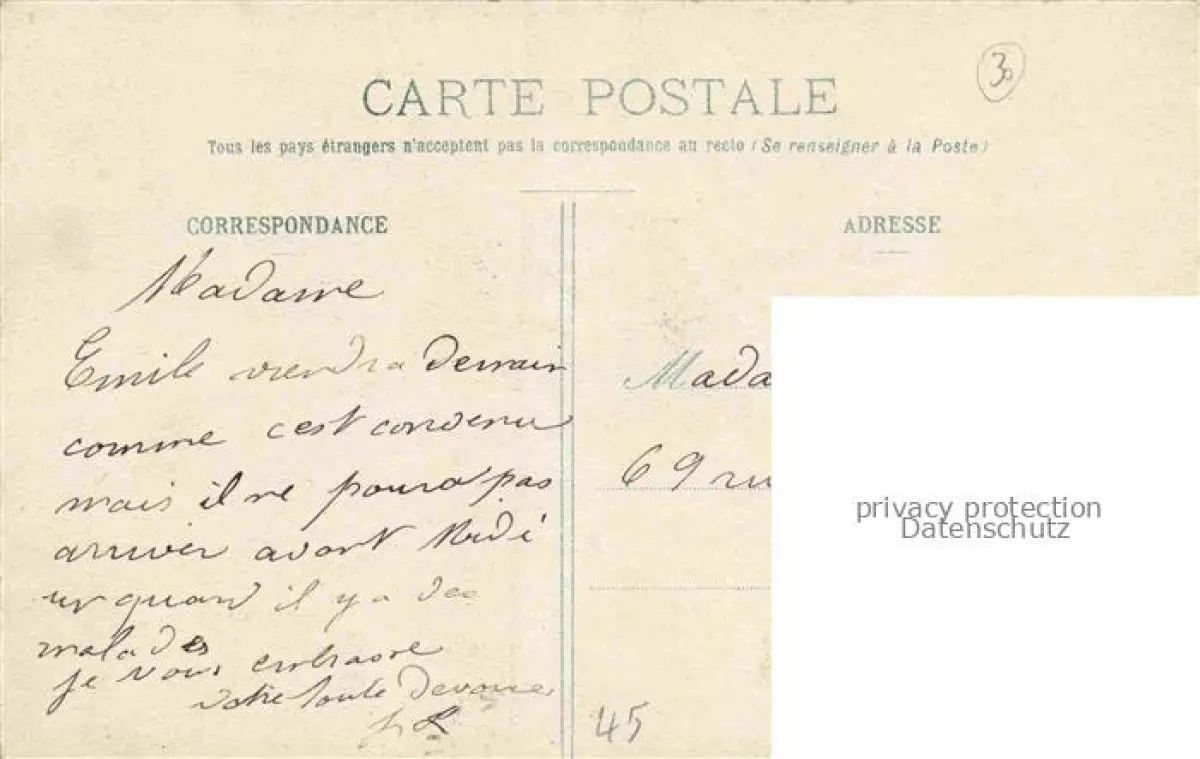 30
CARTE POSTALE
Tous les pays étrangers n'acceptent pas la correspondance au recto (Se renseigner à la Poste)
CORRESPONDANCE
ADRESSE
Madame
Emile viendra demain
comme c'est convenu
mais il ne poura pas
arriver avant Midi
quand il y a des
malades
je vous embrasse
votre toute devouée
Mada
69 ru
45
privacy protection
Datenschutz